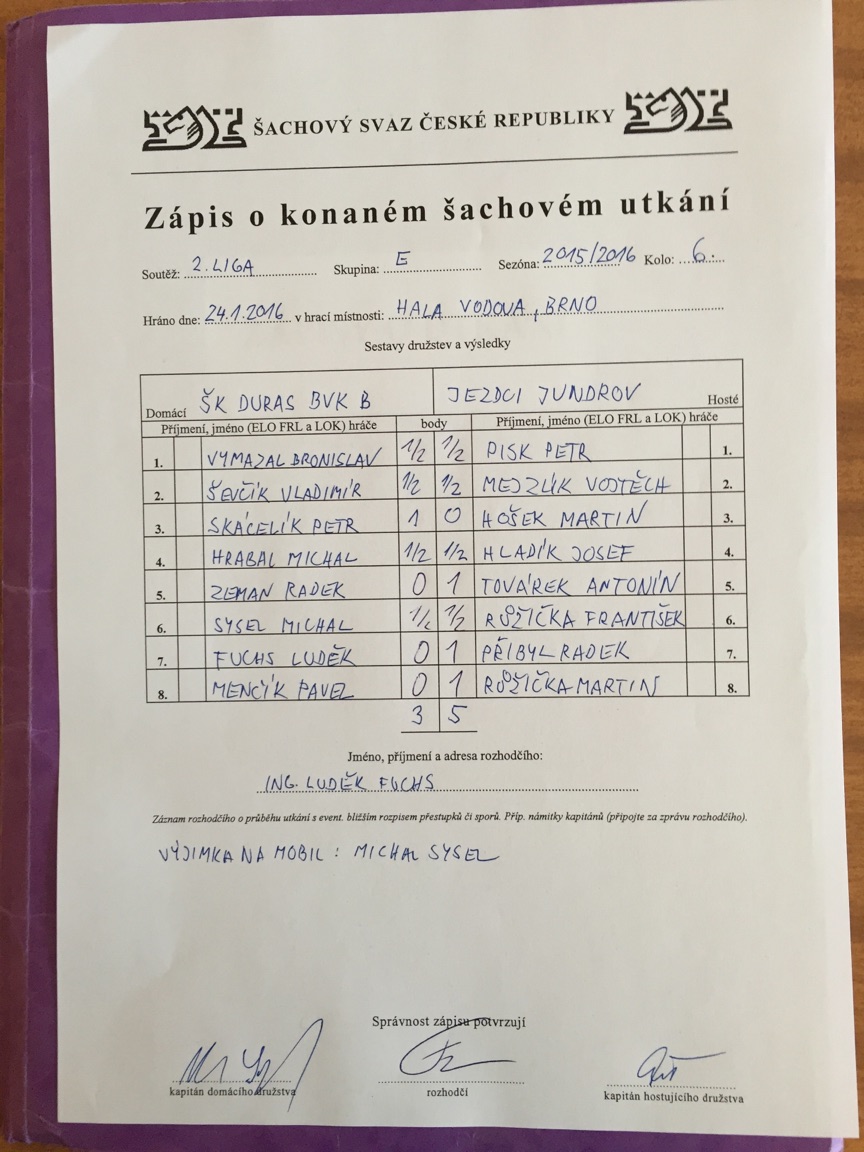 ŠACHOVÝ SVAZ ČESKÉ REPUBLIKY
Zápis o konaném šachovém utkání
Soutěž: 2. LIGA Skupina: E Sezóna: 2015/2016 Kolo: 6.
Hráno dne: 24.1.2016 v hrací místnosti: HALA VODOVA, BRNO
Sestavy družstev a výsledky
Domácí ŠK DURAS BVK B JEZDCI JUNDROV Hosté
Příjmení, jméno (ELO FRL a LOK) hráče body Příjmení, jméno (ELO FRL a LOK) hráče
1. VYMAZAL BRONISLAV 1/2 1/2 PISK PETR 1.
2. ŠEVČÍK VLADIMÍR 1/2 1/2 MEJZLÍK VOJTĚCH 2.
3. SKÁCELÍK PETR 1 0 HOŠEK MARTIN 3.
4. HRABAL MICHAL 1/2 1/2 HLADÍK JOSEF 4.
5. ZEMAN RADEK 0 1 TOVÁREK ANTONÍN 5.
6. SYSEL MICHAL 1/2 1/2 RŮŽIČKA FRANTIŠEK 6.
7. FUCHS LUDĚK 0 1 PŘIBYL RADEK 7.
8. MENČÍK PAVEL 0 1 RŮŽIČKA MARTIN 8.
3 5
Jméno, příjmení a adresa rozhodčího:
ING. LUDĚK FUCHS
Záznam rozhodčího o průběhu utkání s event. bližším rozpisem přestupků či sporů. Příp. námitky kapitánů (připojte za zprávu rozhodčího).
VÝJIMKA NA MOBIL : MICHAL SYSEL
Správnost zápisu potvrzují
kapitán domácího družstva rozhodčí kapitán hostujícího družstva